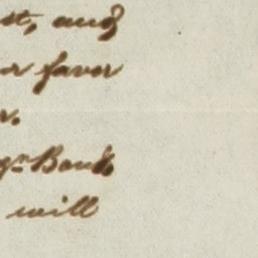 st, and
r favor
r.
gn Bank
will